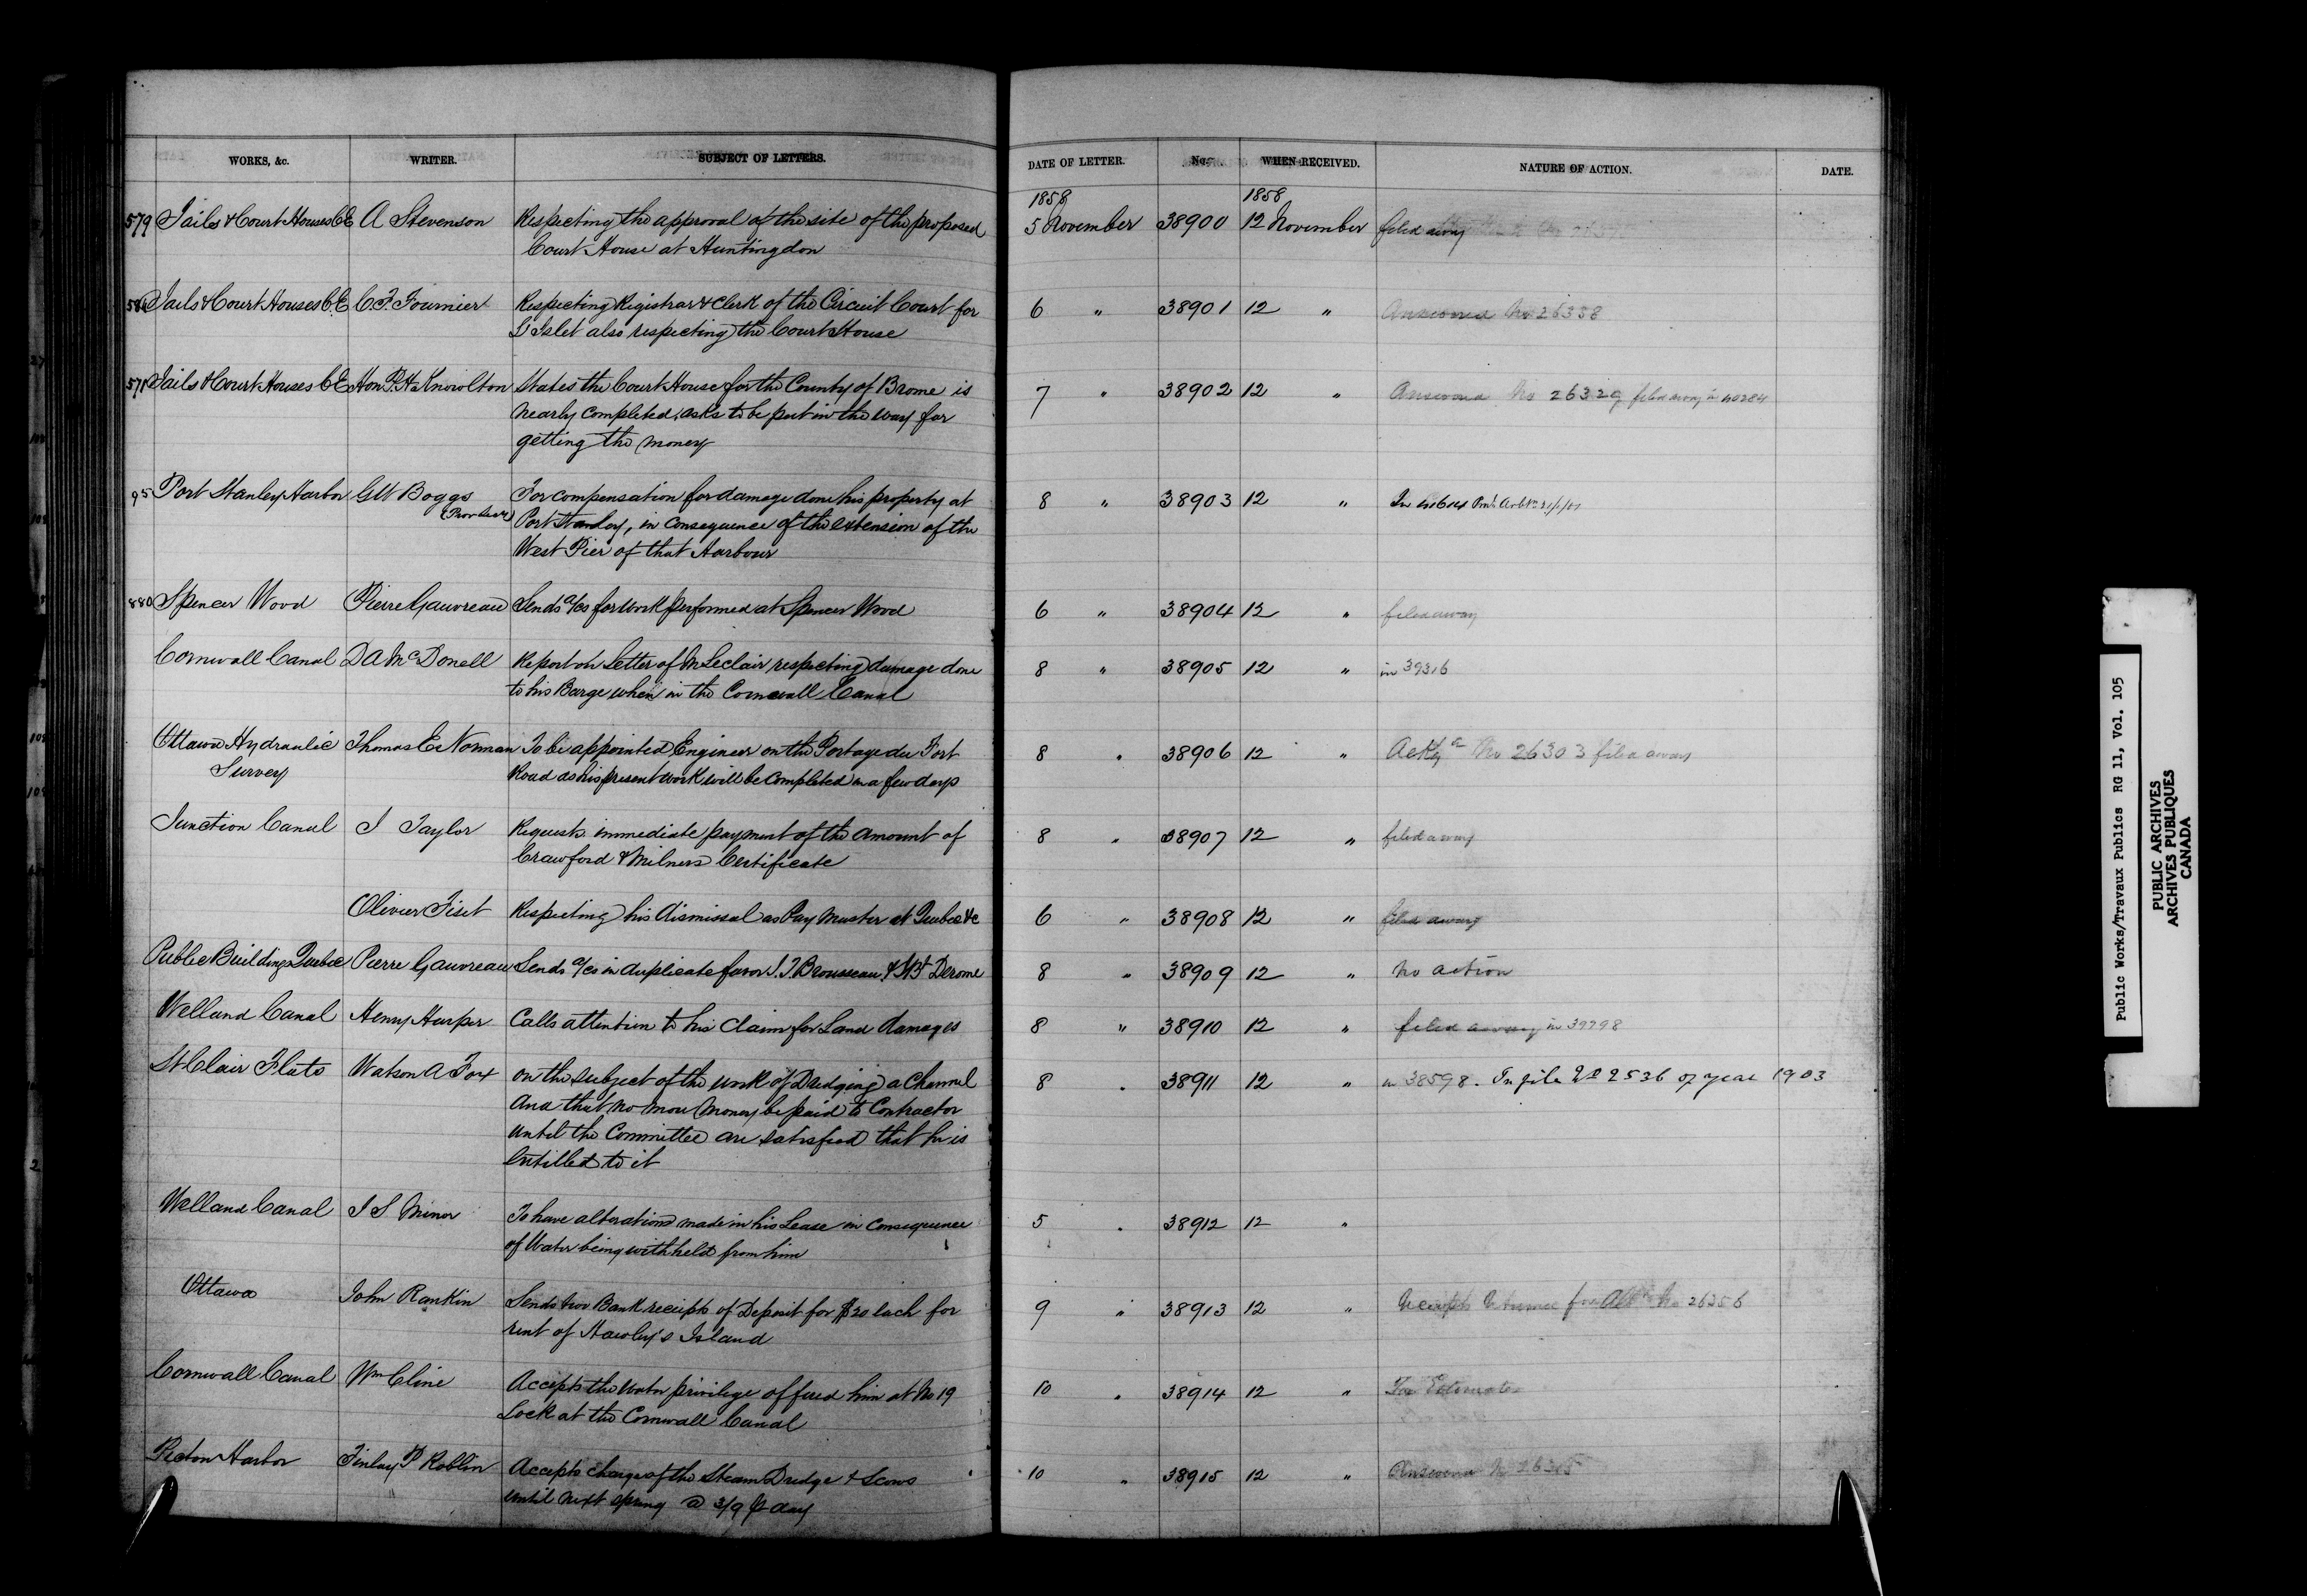 WORKS, &c. WRITER. SUBJECT OF LETTERS. DATE OF LETTER. No. WHEN RECEIVED. NATURE OF ACTION. DATE.
1858 1858
579 Jails & Court Houses C.E A Stevenson Respecting the approval of the site of the proposed 5 November 38900 12 November filed away
Court House at Huntingdon
Jails & Court Houses C.E C.F. Fournier Respecting Registrar & Clerk of the Circuit Court for 6 " 38901 12 " Answered No 26338
L'Islet also respecting the Court House
571 Jails & Court Houses C.E Hon P.H. Knowlton States the Court House for the County of Brome is 7 " 38902 12 " Answered No 26329 filed away in 40284
nearly completed, asks to be put in the way for
getting the money
95 Port Stanley Harbor G W Boggs For compensation for damage done his property at 8 " 38903 12 " In 41614
Port Stanley, in consequence of the extension of the
West Pier of that Harbour
880 Spencer Wood Pierre Gauvreau Sends a/cs for work performed at Spencer Wood 6 " 38904 12 " filed away
Cornwall Canal D A McDonell Report on Letter of M Leclair respecting damage done 8 " 38905 12 " in 39316
to his Barge when in the Cornwall Canal
Ottawa Hydraulic Thomas E. Norman To be appointed Engineer on the Portage du Fort 8 " 38906 12 " Ackg No 26303 filed away
Survey Road as his present work will be completed in a few days
Junction Canal J Taylor Requests immediate payment of the amount of 8 " 38907 12 " filed away
Crawford & Milners Certificate
Olivier Fiset Respecting his dismissal as Pay Master at Quebec &c 6 " 38908 12 " filed away
Public Buildings Quebec Pierre Gauvreau Sends a/cs in duplicate favor J. T. Brousseau & Derome 8 " 38909 12 " No action
Welland Canal Henry Harper Calls attention to his Claim for Land damages 8 " 38910 12 " filed away in 39798
St Clair Flats Watson A Fox on the subject of the work of Dredging a Channel 8 " 38911 12 " in 38598. In file No 2536 of year 1903
And that no more money be paid to Contractor
until the Committee are satisfied that he is
Entilled to it
Welland Canal J S Minor To have alterations made in his Lease in consequence 5 " 38912 12 "
of Water being withheld from him
Ottawa John Rankin Sends two Bank receipts of Deposit for $20 each for 9 " 38913 12 " Receipts No 26356
rent of Hawley's Island
Cornwall Canal Wm Cline Accepts the Water privilege offered him at No 19 10 " 38914 12 " For Estimates
Lock at the Cornwall Canal
Picton Harbor Finlay P Roblin Accepts charge of the Steam Dredge & Scows 10 " 38915 12 " Answered No 26315
until next spring @ 3/9 p day
Public Works/Travaux Publics RG 11, Vol. 105
PUBLIC ARCHIVES
ARCHIVES PUBLIQUES
CANADA